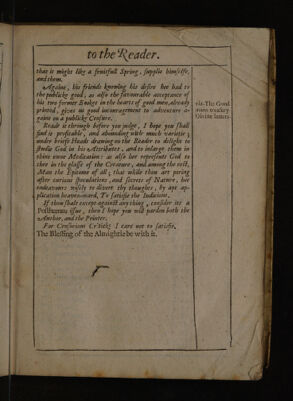 to the Reader.
that it might like a fruitfull Spring, supplie himselfe,
and them.
Againe, his friends knowing his desire her had to
the publicke good, as also the favourable acceptance of
his two former Bookes in the hearts of good men, already
printed, gives us good incouragement to adventure a-
gaine on a publicke Censure.
Reade it through before you judge, I hope you shall
find it profitable, and abounding with much varietie;
under briefe Heads drawing on the Reader to delight to
studie God in his Attributes, and to inlarge them in
thine owne Meditation: as also her represents God to
thee in the glasse of the Creature, and among the rest,
Man the Epitome of all; that while thou art prying
after curious speculations, and secrets of Nature, hee
endeavours wisely to divert thy thoughts, by apt ap-
plication heaven-ward, To satisfie the Judicious.
If thou shalt except against any thing, consider its a
Posthumus issue, then I hope you will pardon both the
Author, and the Printer.
For Censorious Criticks I care not to satisfie.
The Blessing of the Almightie be with it.
viz. The Good